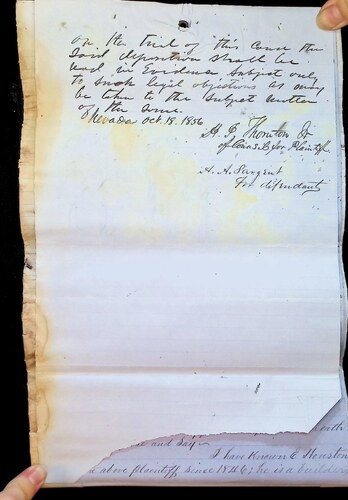 on the trial of this Cause the
Said deposition shall be
used in Evidence Subject only
to such legal objections as may
be taken to the Subject matter
of the same
Nevada Oct. 18. 1856
H. I. Thornton Jr
of Counsel for Plaintiff
A. A. Sargent
For defendants
with
and say
I have Known Houston
above plaintiff, since 1846; he is a builder